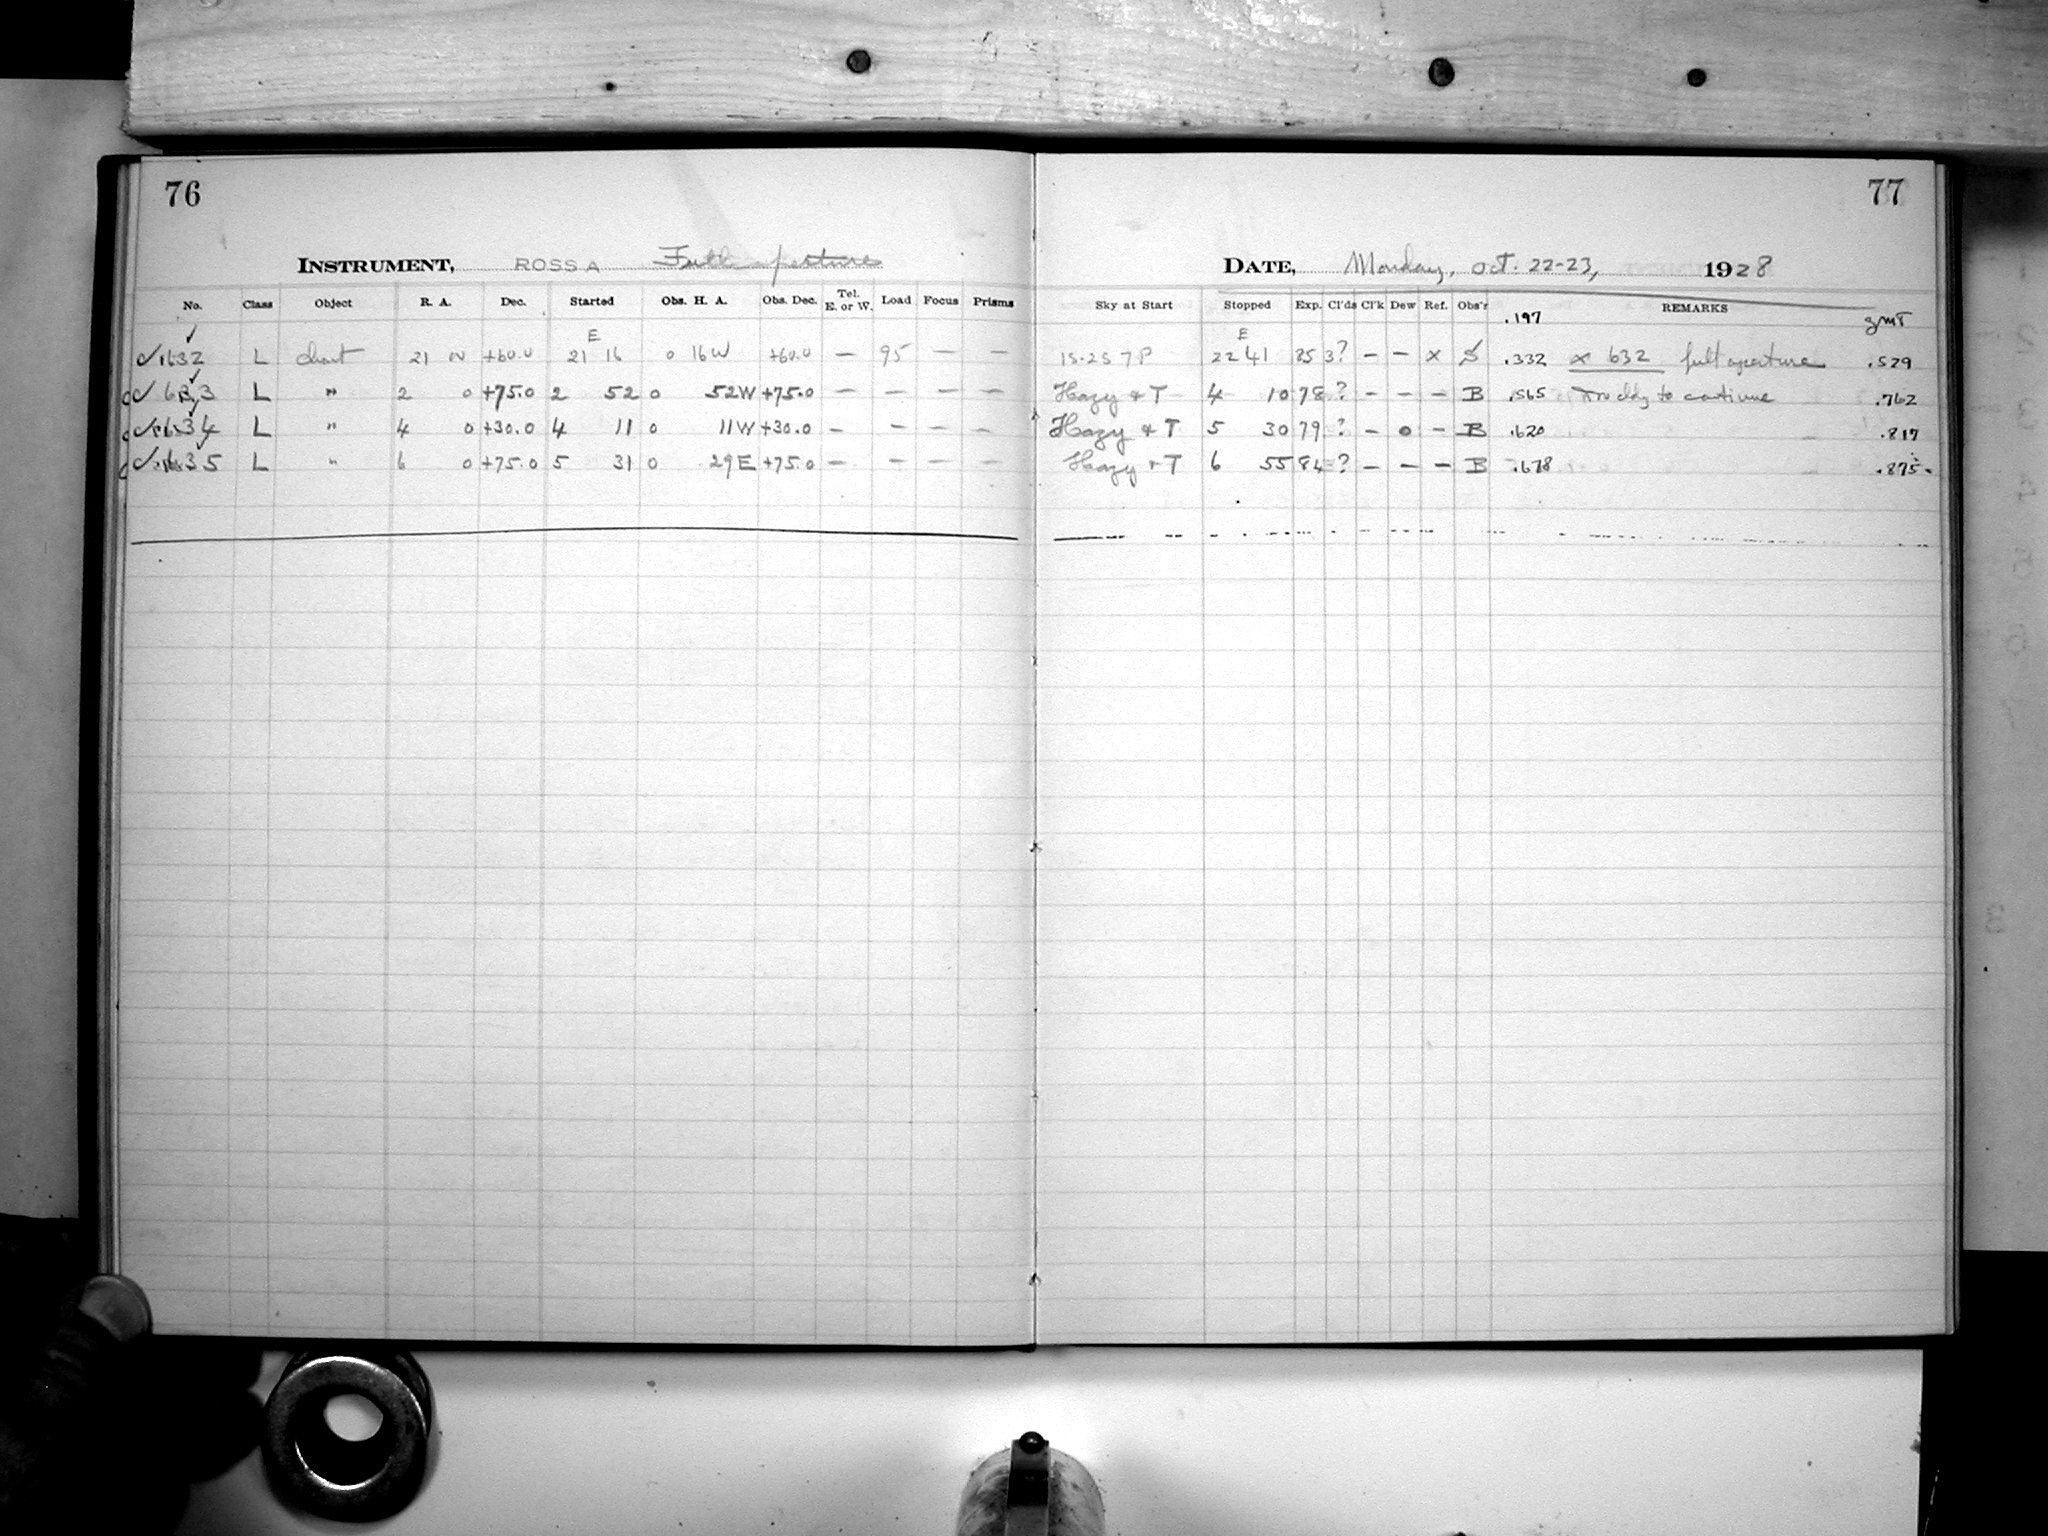 76
INSTRUMENT, ROSS A Full aperture
No. Class Object R. A. Dec. Started Obs. H. A. Obs. Dec. Tel. E. or W. Load Focus Prisms
E
✓1632 L chart 21 +60.0 21 16 0 16W +60.0 — 95 — —
✓ 633 L " 2 0 +75.0 2 52 0 52W +75.0 — — — —
✓ 634 L " 4 0 +30.0 4 11 0 11W +30.0 — — — —
✓ 635 L " 6 0 +75.0 5 31 0 29E +75.0 — — — —
77
DATE, Monday, Oct. 22-23, 1928
Sky at Start Stopped Exp. Cl'ds Cl'k Dew Ref. Obs'r REMARKS
.197 gmt
E
1S-2S 7P 22 41 85 3? — — x S .332 x 632 full aperture .529
Hazy & T 4 10 78 ? — — — B .565 Too cldy to continue .762
Hazy & T 5 30 79 ? — o — B .620 .817
Hazy & T 6 55 84 ? — — — B .678 .875